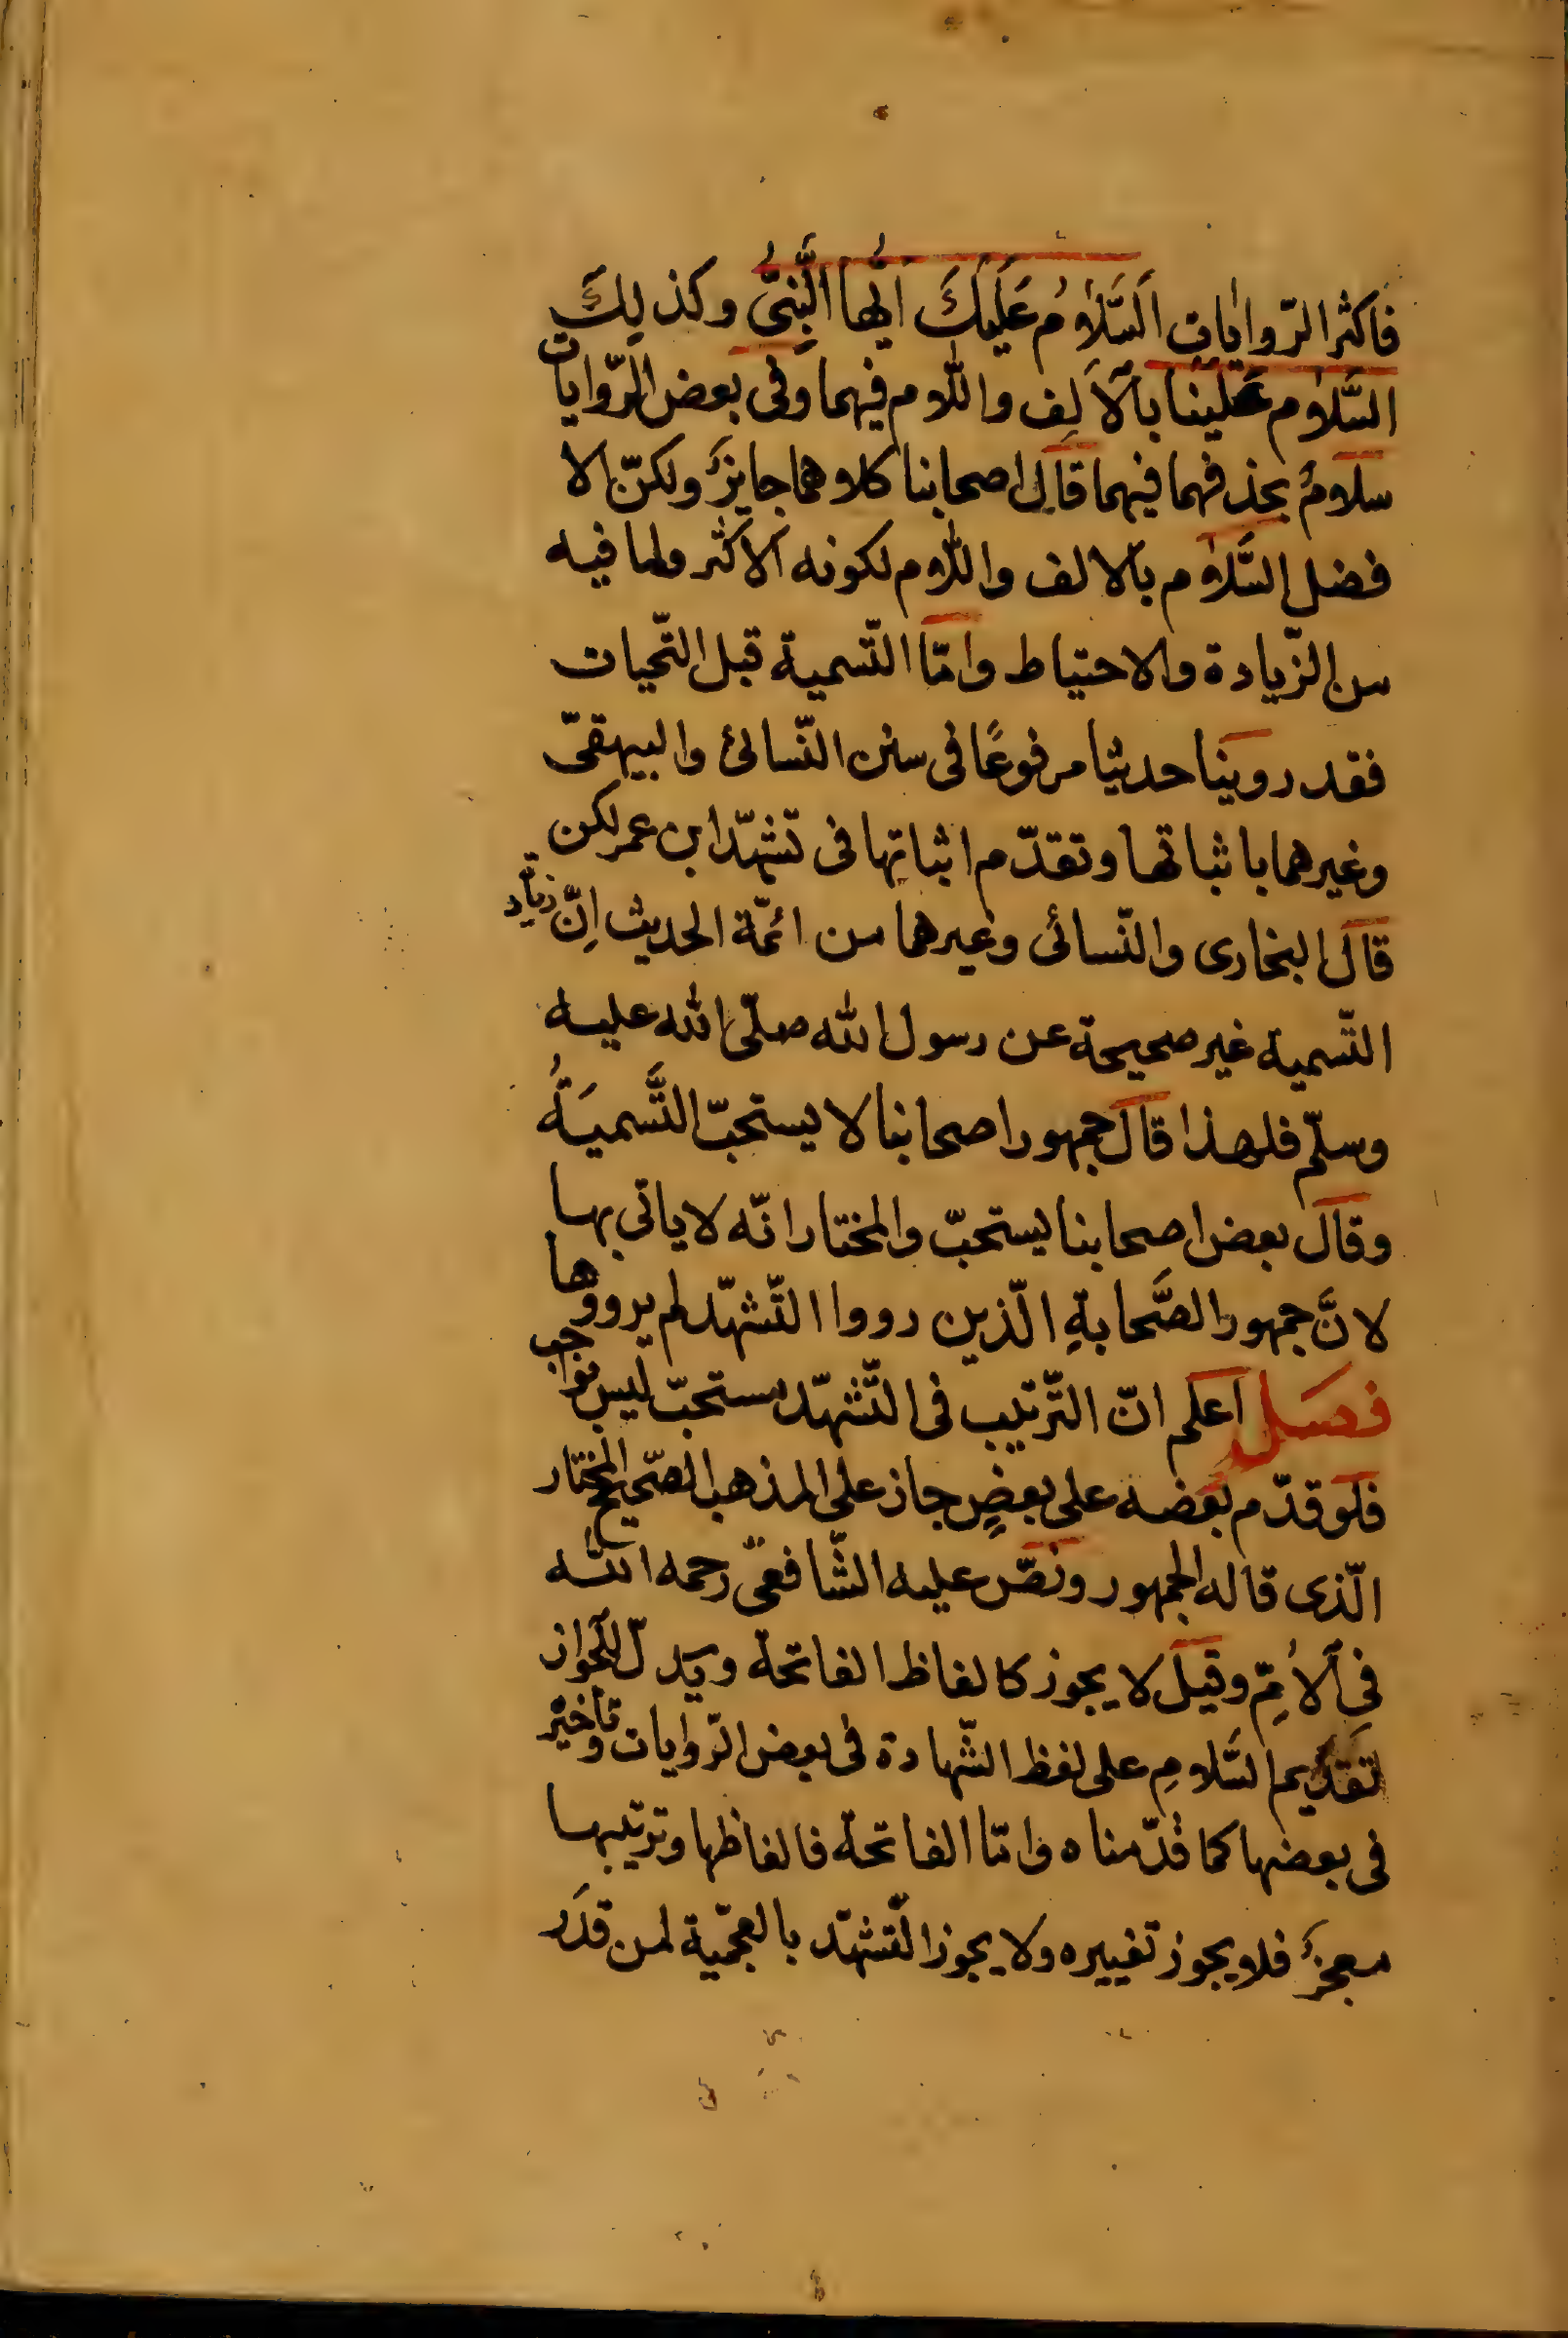 فاكثر الرّوايات اَلسَّلَامُ عَلَيكَ ايُّها النَّبِىُّ وكذلِكَ
السَّلام عَلَينا بالاَلِف واللّام فيهما وفى بعض الرّوايات
سلامٌ بحذفهما فيهما قال اصحابنا كلاوهما جايزٌ ولكنّ الا
فضل السَّلام بالالف واللّام لكونه الاكثر ولما فيه
من الزّيادة والاحتياط وامّا التّسمية قبل التّحيات
فقد روينا حديثا مرفوعًا فى سنن النّسائى والبيهقىّ
وغيرهما باثباتها وتقدّم اثباتها فى تشهّد ابن عمر لكن
قال البخارى والنّسائى وغيرهما من ائمّة الحديث اِنّ زيّاد
التّسمية غير صحيحة عن رسول الله صلّى الله عليه
وسلّم فلهذا قال جمهور اصحابنا لا يستحبّ التَّسميَةُ
وقال بعض اصحابنا يستحبّ والمختار انّه لا ياتى بها
لانَّ جمهور الصَّحابةِ الّذين رووا التّشهّد لم يرووها
فصل اعلم انّ التّرتيب فى التّشهّد مستحبّ ليس بواجب
فلو قدّم بعضه على بعضٍ جاز على المذهب الصّحيح المختار
الّذى قاله الجمهور ونصّ عليه الشّافعىّ رحمه الله
فى الاُمِّ وقيل لا يجوز كالفاظ الفاتحة ويدلّ للجواز
تقديم السَّلامِ على لفظ الشّهادة فى بعض الرّوايات وتأخيره
فى بعضها كما قدّمناه وامّا الفاتحة فالفاظها وترتيبها
معجزٌ فلا يجوز تغييره ولا يجوز التّشهّد بالعجميّة لمن قدَر